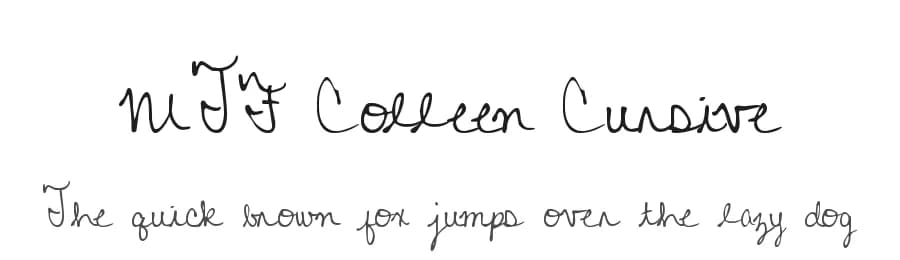 MTF Colleen Cursive
The quick brown fox jumps over the lazy dog